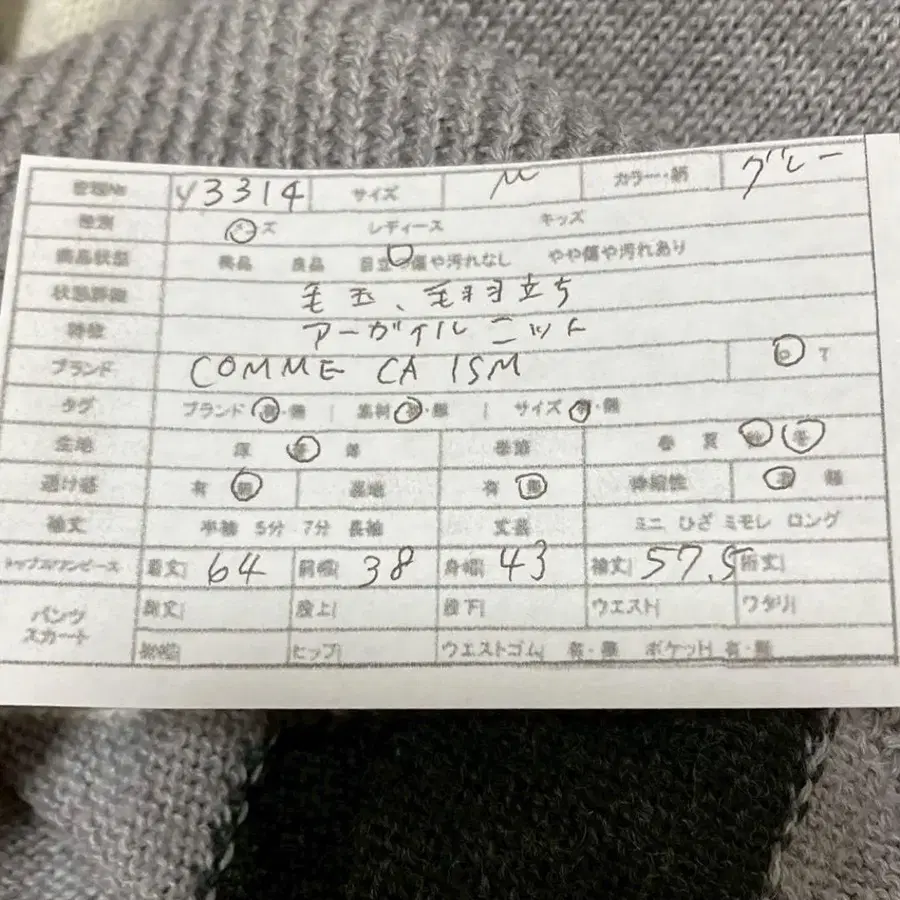 管理No y3314 サイズ M カラー・柄 グレー
種別 メンズ レディース キッズ
商品状態 美品 良品 目立つ傷や汚れなし やや傷や汚れあり
状態詳細 毛玉、毛羽立ち
特徴 アーガイルニット
ブランド COMME CA ISM P T
タグ ブランド 有・無 | 素材 有・無 | サイズ 有・無
生地 厚 普 薄 季節 春 夏 秋 冬
透け感 有 無 裏地 有 無 伸縮性 有 無
袖丈 半袖 5分 7分 長袖 丈長 ミニ ひざ ミモレ ロング
トップス/ワンピース 着丈| 64 肩幅| 38 身幅| 43 袖丈| 57.5 裄丈|
パンツ スカート 総丈| 股上| 股下| ウエスト| ワタリ|
裾幅| ヒップ| ウエストゴム| 有・無 ポケット| 有・無